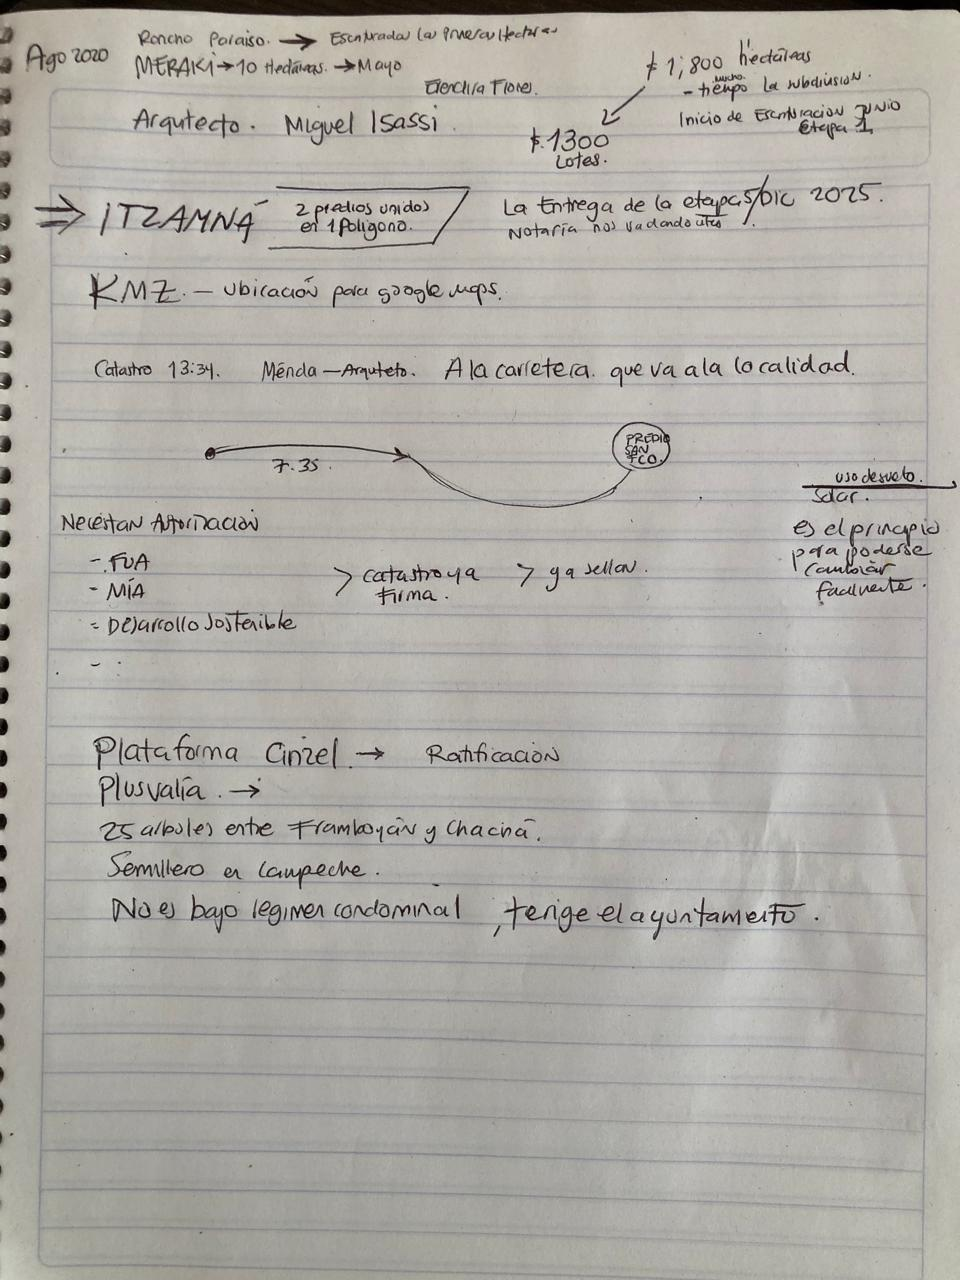 Ago 2020
Rancho Paraiso. → Escriturada la Primera Hectárea
MERAKI → 10 Hectáreas. → Mayo
Flores.
Arquitecto. Miguel Isassi.
1,800 hectáreas
mucho
- tiempo la subdivision.
Inicio de Escrituración JUNIO
Etapa 1
1300
Lotes.
⇒ ITZAMNÁ
2 predios unidos
en 1 Poligono.
La Entrega de la etapa 5/DIC 2025.
Notaría nos va dando
KMZ. – ubicación para google maps.
Catastro 13:34. Mérida – Arquitecto. A la carretera. que va a la localidad.
7.35.
PREDIO
SAN
FCO.
uso de suelo.
Solar.
es el principio
para poderse
cambiar
facilmente.
Necesitan Autorización
- FUA
- MÍA
- Desarrollo Sostenible
- .
> catastro ya
firma.
> ya sellan.
Plataforma Cinzel. → Ratificación
Plusvalía. →
25 arboles entre Framboyán y Chacná.
Semillero en Campeche.
No es bajo regimen condominal, te rige el ayuntamiento.